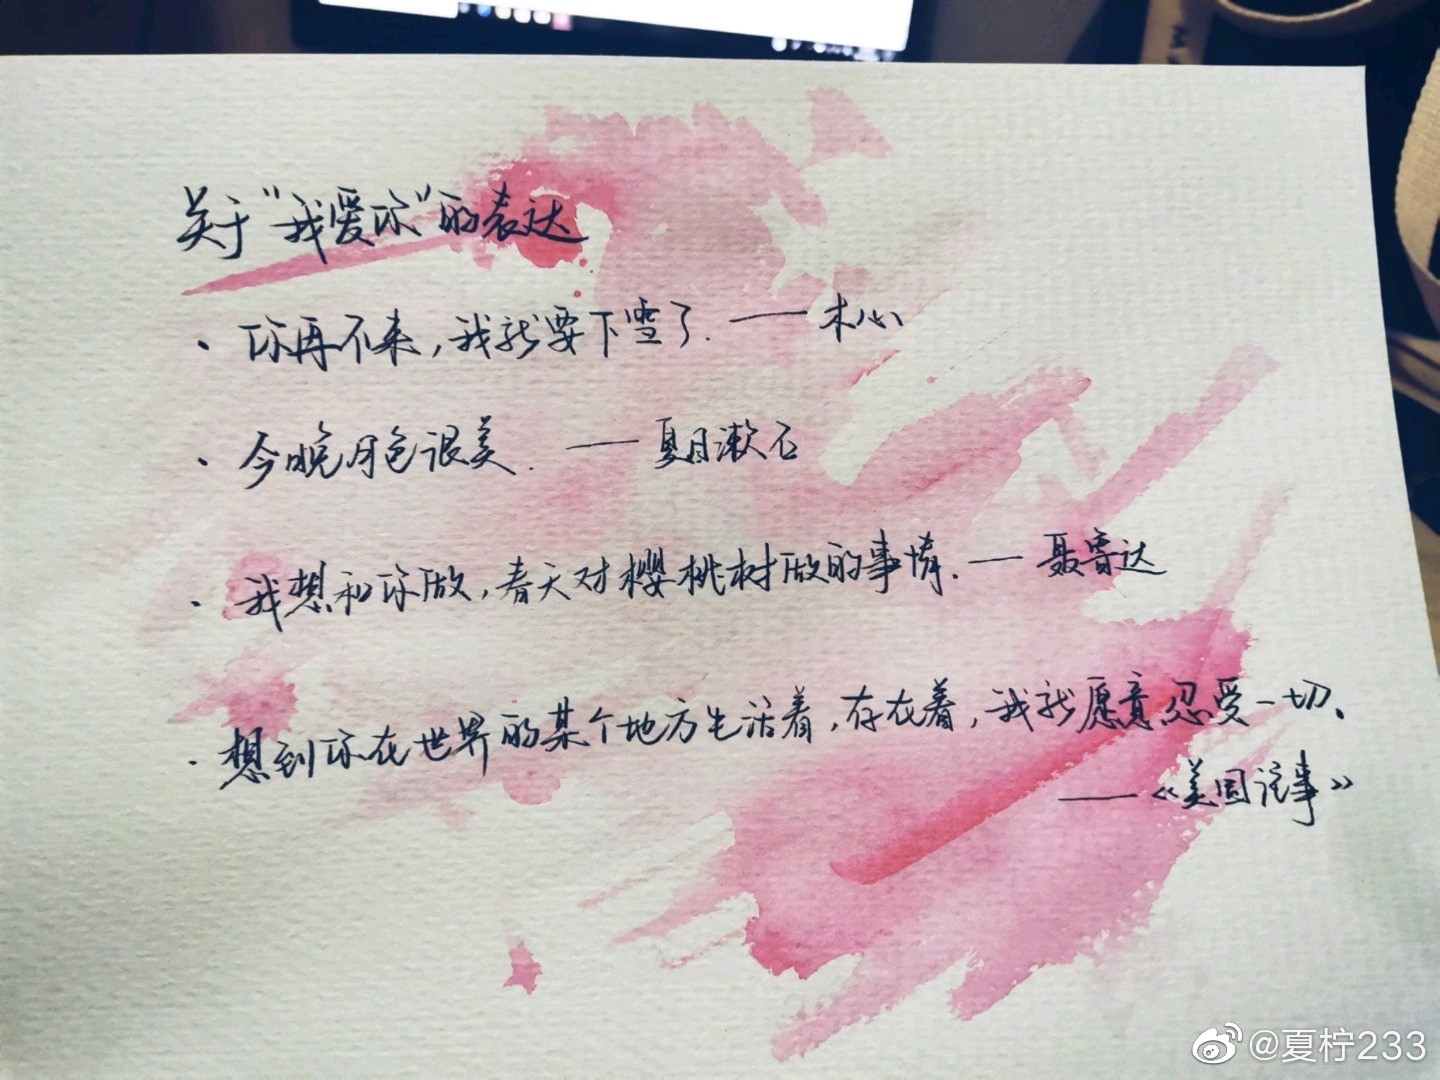 关于“我爱你”的表达
· 你再不来，我就要下雪了. —— 木心
· 今晚月色很美. —— 夏目漱石
· 我想和你做，春天对樱桃树做的事情. — 聂鲁达
· 想到你在世界的某个地方生活着，存在着，我就愿意忍受一切、
——《美国往事》
@夏柠233